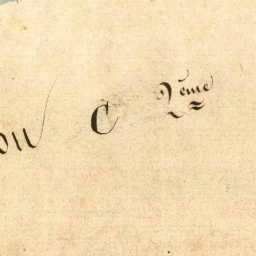 on C 2ème